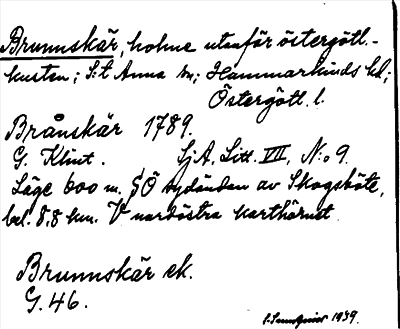 Brunnskär, holme utanför östergötl.-
kusten; S:t Anna sn; Hammarkinds hd;
Östergötl. l.
Brånskär 1789.
G. Klint. SjA. Litt. VII, N:o 9.
Läge 600 m. SÖ sydändan av Skogsböte,
bel. 8.8 km. V nordöstra karthörnet.
Brunnskär ek.
G. 46.
1939.